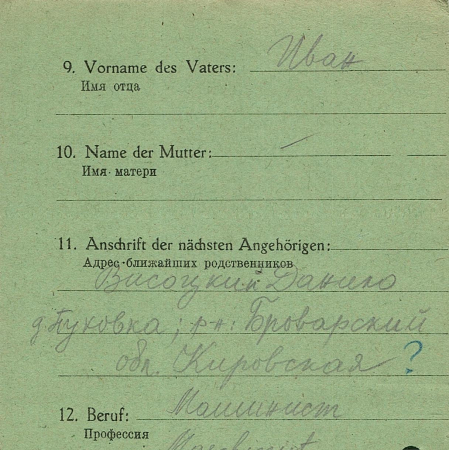 9. Vorname des Vaters: Иван
Имя отца
10. Name der Mutter: —
Имя матери
11. Anschrift der nächsten Angehörigen:
Адрес ближайших родственников
Висоцкий Данило
д. Пуховка; р-н: Броварский
обл. Кировская ?
12. Beruf: Машинист
Профессия